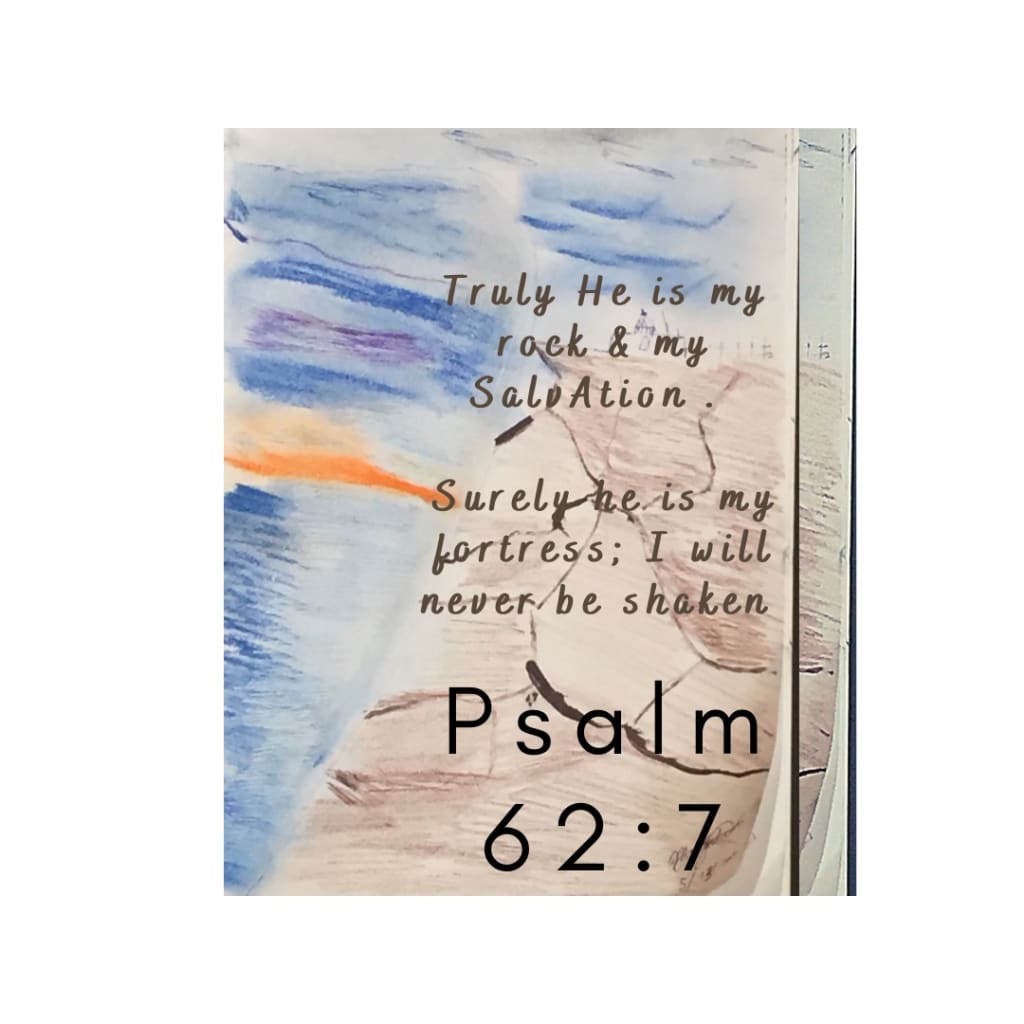 Truly He is my
rock & my
SalvAtion .
Surely he is my
fortress; I will
never be shaken
Psalm
62:7
5/13